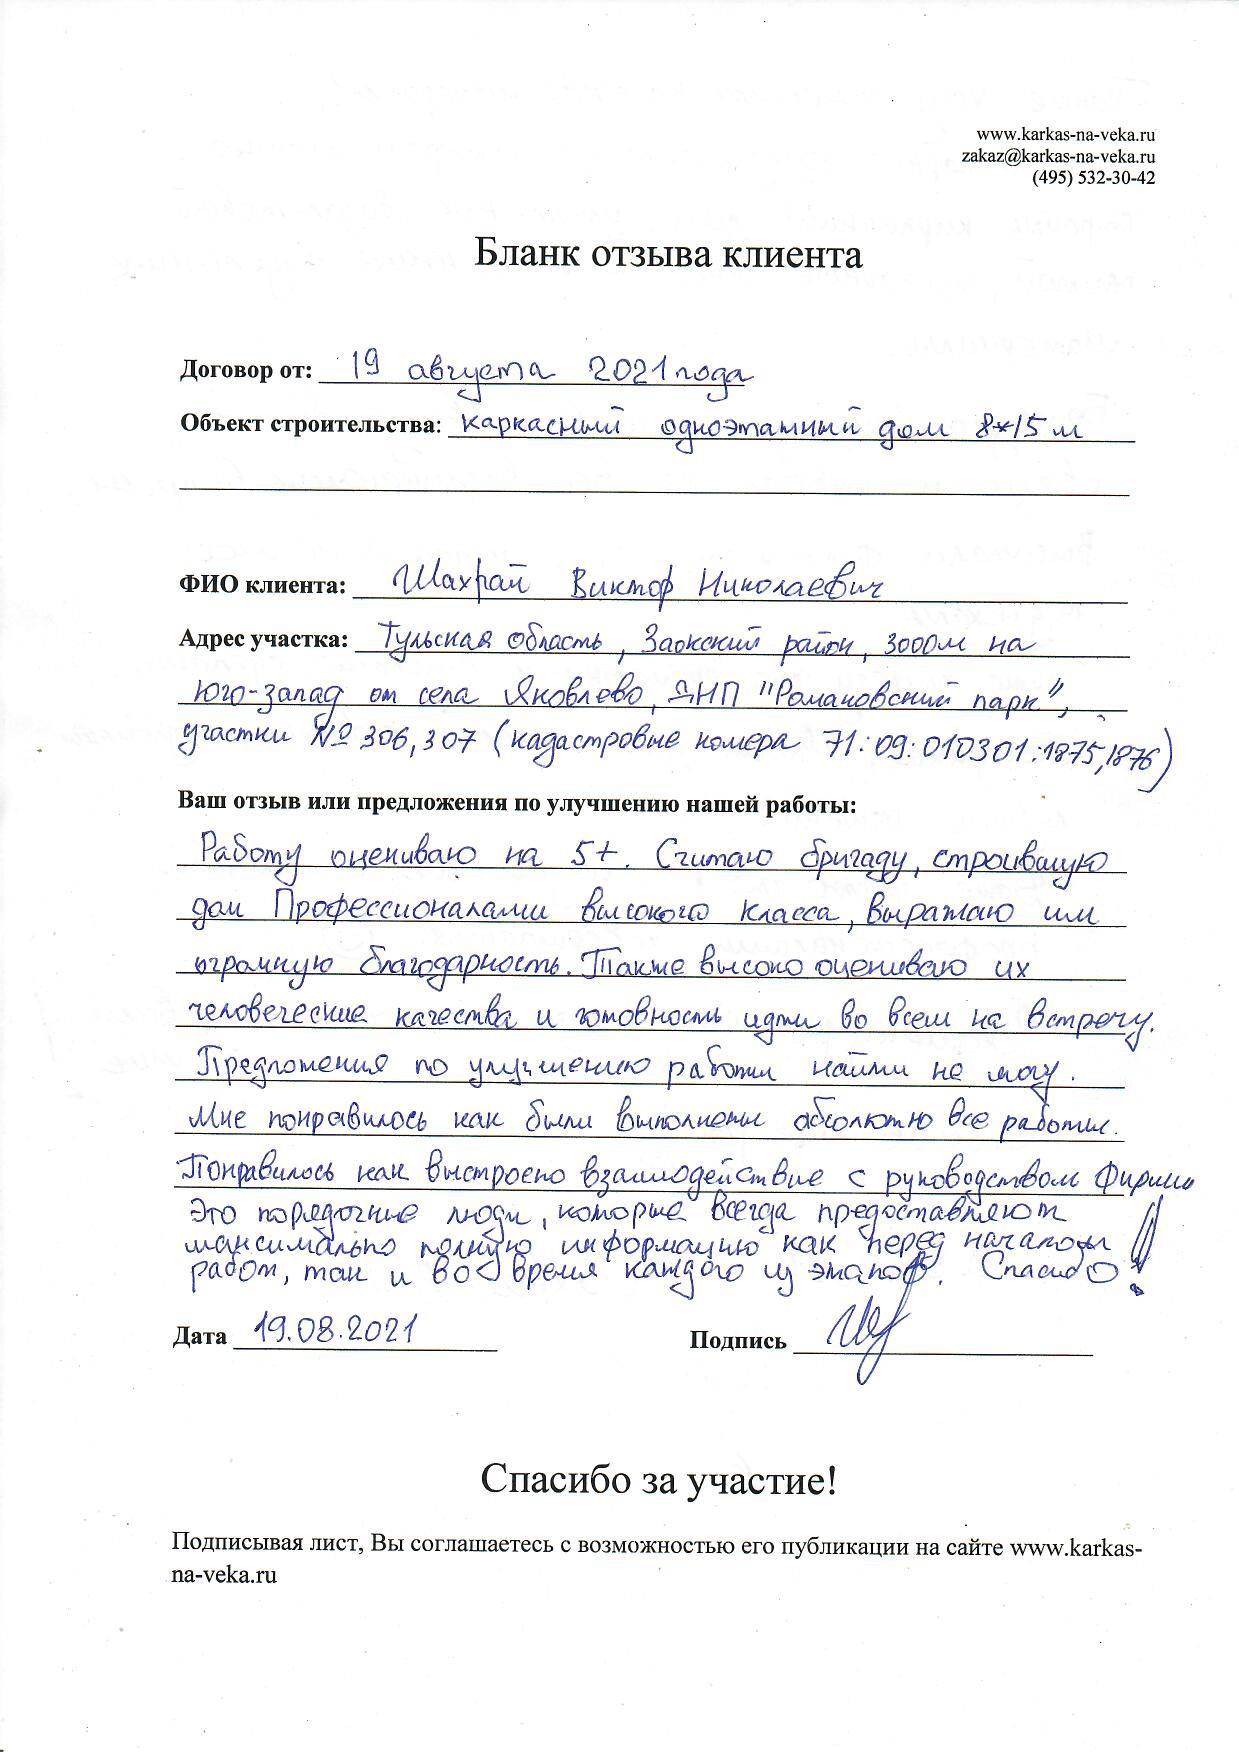 www.karkas-na-veka.ru
zakaz@karkas-na-veka.ru
(495) 532-30-42
Бланк отзыва клиента
Договор от: 19 августа 2021 года
Объект строительства: каркасный одноэтажный дом 8*15 м
ФИО клиента: Шахрай Виктор Николаевич
Адрес участка: Тульская область, Заокский район, 3000м на
юго-запад от села Яковлево, ДНП "Романовский парк",
участки № 306, 307 (кадастровые номера 71:09:010301:1875,1876)
Ваш отзыв или предложения по улучшению нашей работы:
Работу оцениваю на 5+. Считаю бригаду, строившую
дом Профессионалами высокого класса, выражаю им
огромную благодарность. Также высоко оцениваю их
человеческие качества и готовность идти во всем на встречу.
Предложения по улучшению работы найти не могу.
Мне понравилось как были выполнены абсолютно все работы.
Понравилось как выстроено взаимодействие с руководством Фирмы
Это порядочные люди, которые всегда предоставляют
максимально полную информацию как перед началом
работ, так и во время каждого из этапов. Спасибо!
Дата 19.08.2021 Подпись
Спасибо за участие!
Подписывая лист, Вы соглашаетесь с возможностью его публикации на сайте www.karkas-
na-veka.ru